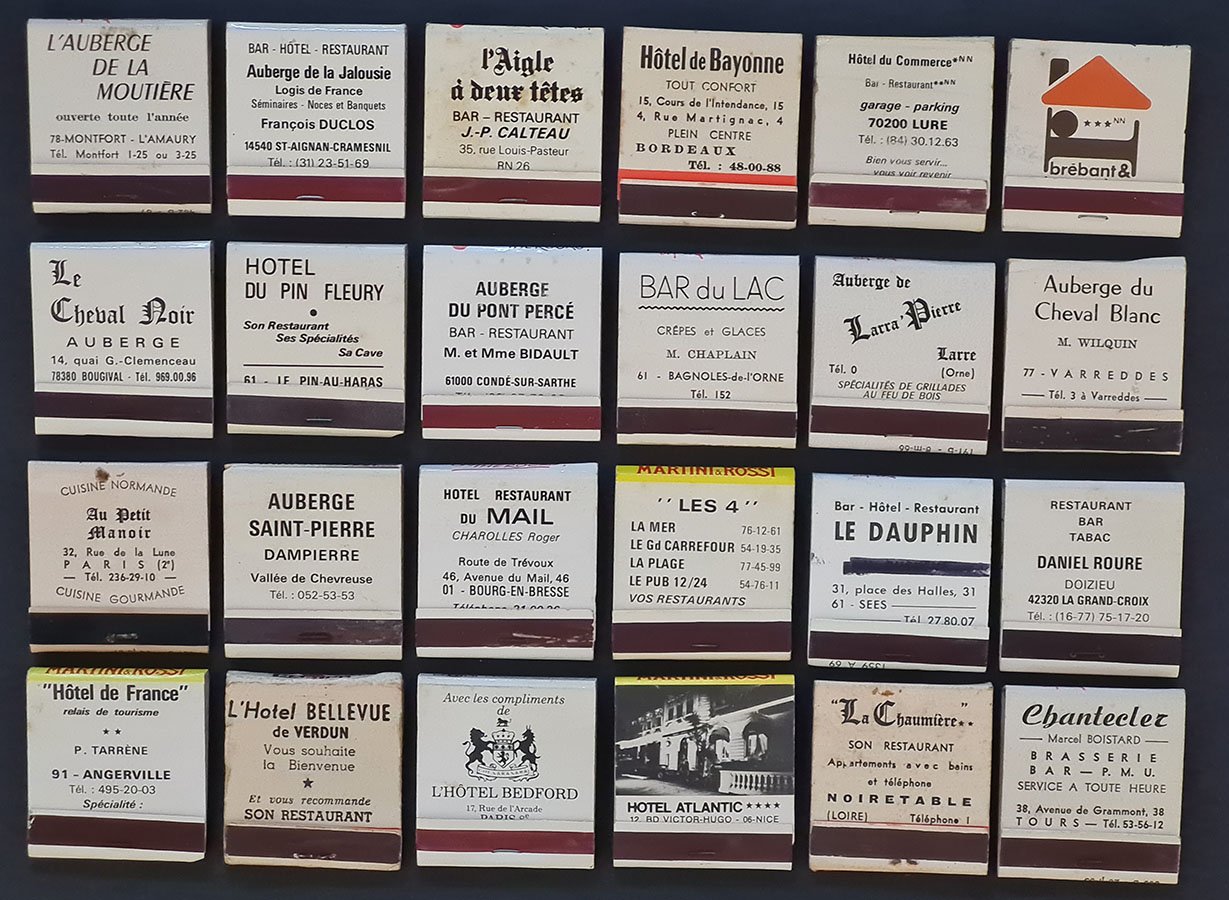 L'AUBERGE
DE LA
MOUTIÈRE
ouverte toute l'année
78-MONTFORT - L'AMAURY
Tél. Montfort 1-25 ou 3-25
BAR - HÔTEL - RESTAURANT
Auberge de la Jalousie
Logis de France
Séminaires - Noces et Banquets
François DUCLOS
14540 ST-AIGNAN-CRAMESNIL
Tél. : (31) 23-51-69
l'Aigle
à deux têtes
BAR - RESTAURANT
J.-P. CALTEAU
35, rue Louis-Pasteur
RN 26
Hôtel de Bayonne
TOUT CONFORT
15, Cours de l'Intendance, 15
4, Rue Martignac, 4
PLEIN CENTRE
BORDEAUX
Tél. : 48-00-88
Hôtel du Commerce*NN
Bar - Restaurant**NN
garage - parking
70200 LURE
Tél. : (84) 30.12.63
Bien vous servir...
vous voir revenir
***NN
brébant&
Le
Cheval Noir
AUBERGE
14, quai G.-Clemenceau
78380 BOUGIVAL - Tél. 969.00.96
HOTEL
DU PIN FLEURY
Son Restaurant
Ses Spécialités
Sa Cave
61 - LE PIN-AU-HARAS
AUBERGE
DU PONT PERCÉ
BAR - RESTAURANT
M. et Mme BIDAULT
61000 CONDÉ-SUR-SARTHE
BAR du LAC
CRÊPES et GLACES
M. CHAPLAIN
61 - BAGNOLES-de-l'ORNE
Tél. 152
Auberge de
Larra' Pierre
Larre
Tél. 0 (Orne)
SPÉCIALITÉS DE GRILLADES
AU FEU DE BOIS
Auberge du
Cheval Blanc
M. WILQUIN
77 - VARREDDES
Tél. 3 à Varreddes
CUISINE NORMANDE
Au Petit
Manoir
32, Rue de la Lune
PARIS (2e)
— Tél. 236-29-10 —
CUISINE GOURMANDE
AUBERGE
SAINT-PIERRE
DAMPIERRE
Vallée de Chevreuse
Tél. : 052-53-53
HOTEL RESTAURANT
DU MAIL
CHAROLLES Roger
Route de Trévoux
46, Avenue du Mail, 46
01 - BOURG-EN-BRESSE
Téléphone 21.00.26
MARTINI & ROSSI
"LES 4"
LA MER 76-12-61
LE Gd CARREFOUR 54-19-35
LA PLAGE 77-45-99
LE PUB 12/24 54-76-11
VOS RESTAURANTS
Bar - Hôtel - Restaurant
LE DAUPHIN
31, place des Halles, 31
61 - SEES
Tél. 27.80.07
RESTAURANT
BAR
TABAC
DANIEL ROURE
DOIZIEU
42320 LA GRAND-CROIX
Tél. : (16-77) 75-17-20
MARTINI & ROSSI
"Hôtel de France"
relais de tourisme
**
P. TARRÈNE
91 - ANGERVILLE
Tél. : 495-20-03
Spécialité :
L'Hotel BELLEVUE
de VERDUN
Vous souhaite
la Bienvenue
Et vous recommande
SON RESTAURANT
Avec les compliments
de
L'HÔTEL BEDFORD
17, Rue de l'Arcade
PARIS 8e
MARTINI & ROSSI
HOTEL ATLANTIC ****
12, BD VICTOR-HUGO - 06-NICE
"La Chaumière**
SON RESTAURANT
Appartements avec bains
et téléphone
NOIRETABLE
(LOIRE) Téléphone 1
Chantecler
— Marcel BOISTARD —
BRASSERIE
BAR — P.M.U.
SERVICE A TOUTE HEURE
38, Avenue de Grammont, 38
TOURS — Tél. 53-56-12